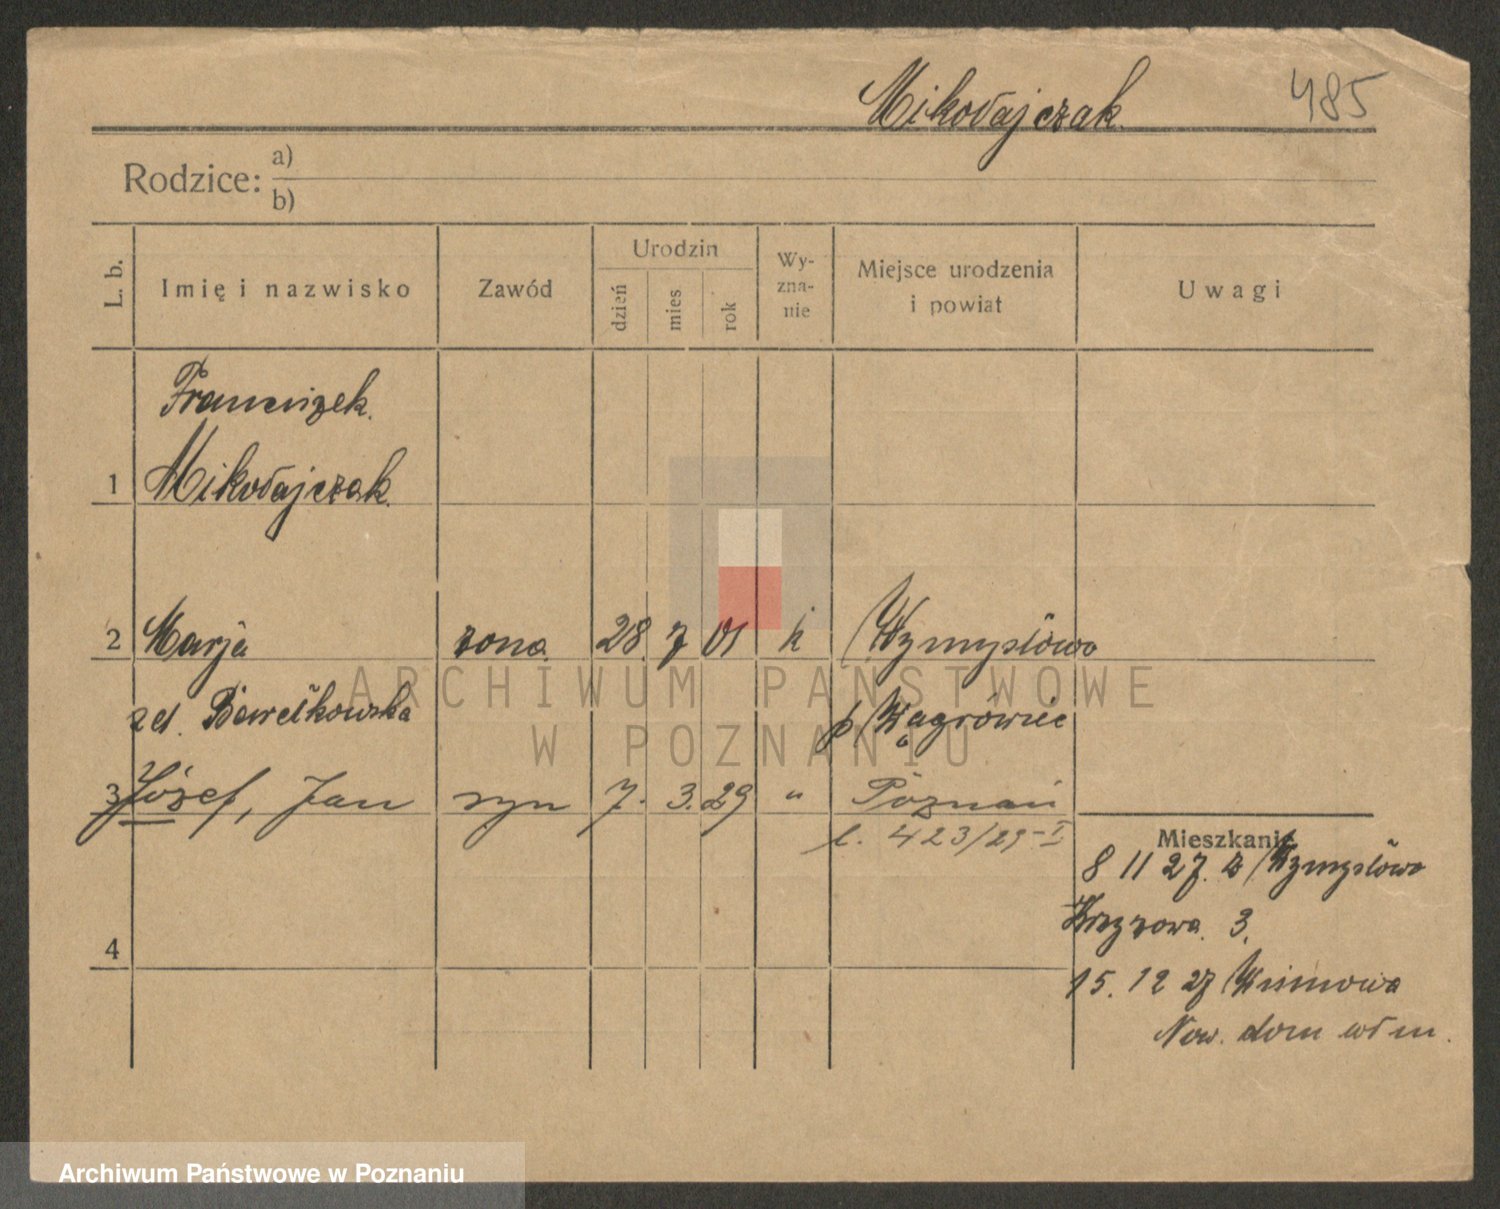 Mikołajczak.
485
Rodzice: a)
b)
L. b.
Imię i nazwisko
Zawód
Urodzin
dzień
mies
rok
Wy-
zna-
nie
Miejsce urodzenia
i powiat
Uwagi
Franciszek.
1 Mikołajczak.
2 Marja żona 28 7 01 k Wymysłowo
zd. p Wągrówiec
3 Józef, Jan syn 7. 3. 29 " Poznań
l. 423/29-I
Mieszkanie
8 11 27. z Wymysłowo
3.
4
15. 12 27
Now. dom wł m.
ARCHIWUM PAŃSTWOWE
W POZNANIU
Archiwum Państwowe w Poznaniu